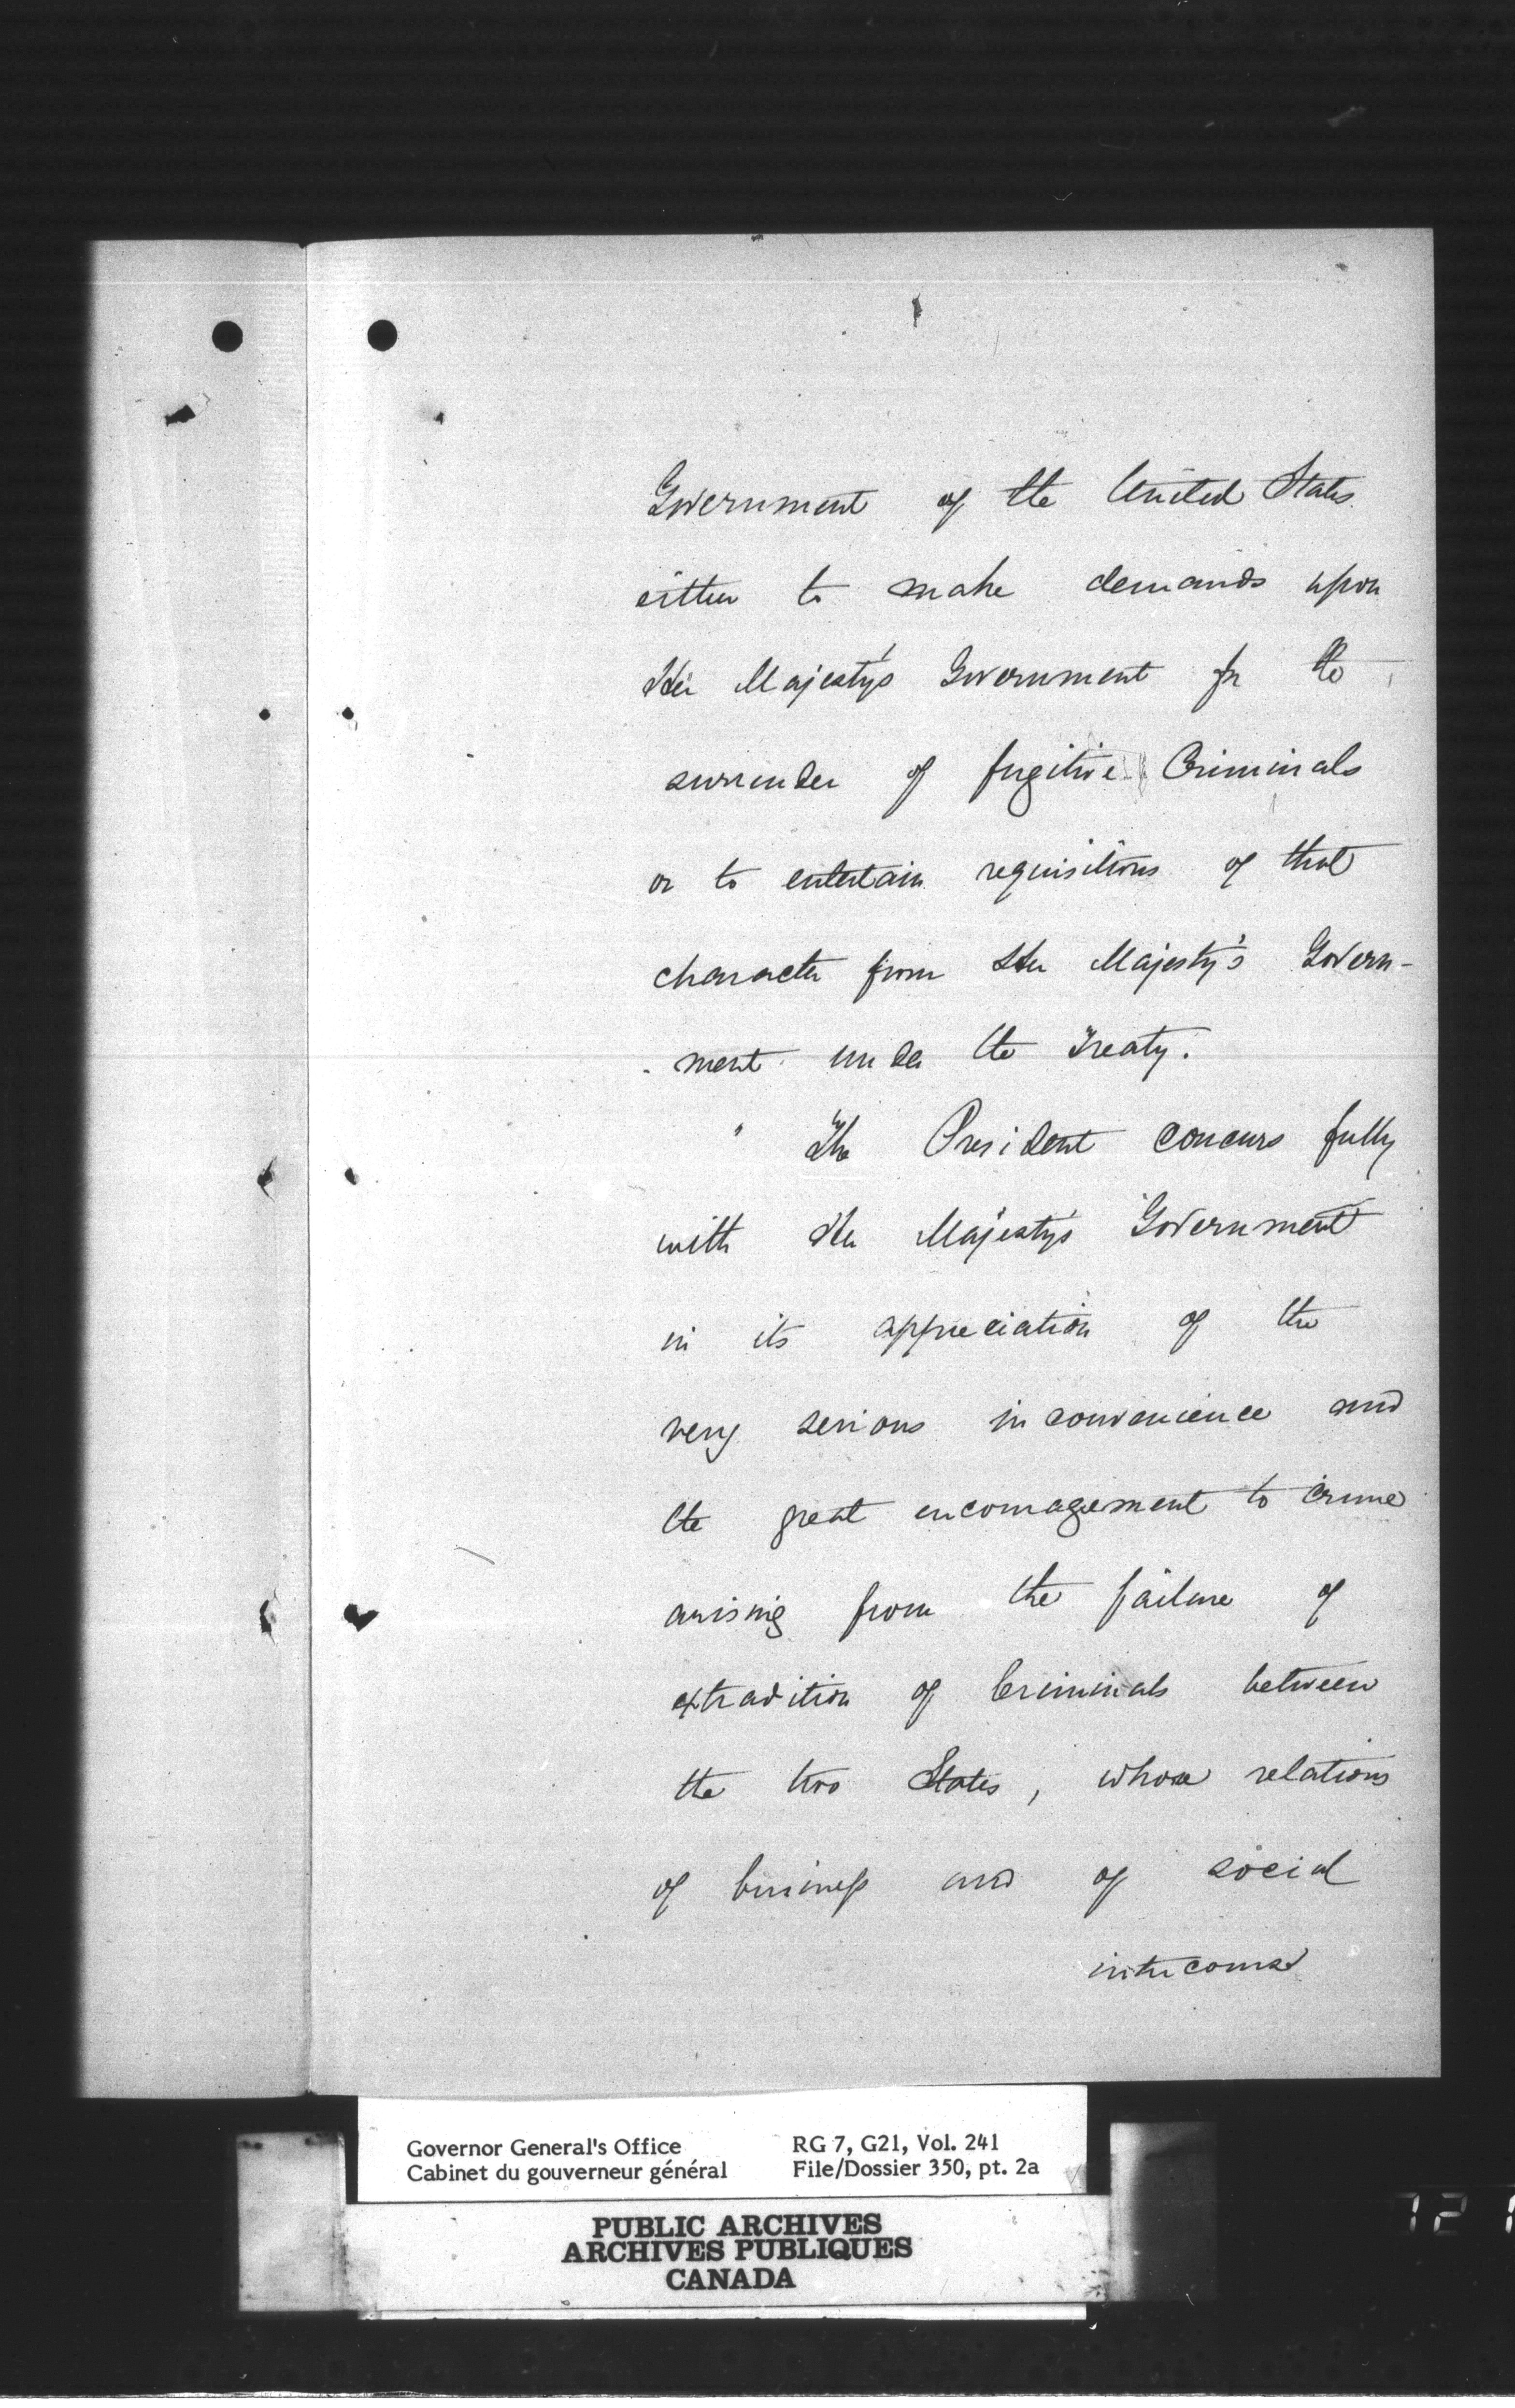 Government of the United States
either to make demands upon
Her Majesty's Government for the
surrender of fugitive Criminals
or to entertain requisitions of that
character from Her Majesty's Govern-
- ment under the Treaty.
" The President concurs fully
with Her Majesty's Government
in its appreciation of the
very serious inconvenience and
the great encouragement to crime
arising from the failure of
extradition of Criminals between
the two States, whose relations
of business and of social
intercourse
Governor General's Office
Cabinet du gouverneur général
RG 7, G21, Vol. 241
File/Dossier 350, pt. 2a
PUBLIC ARCHIVES
ARCHIVES PUBLIQUES
CANADA
721